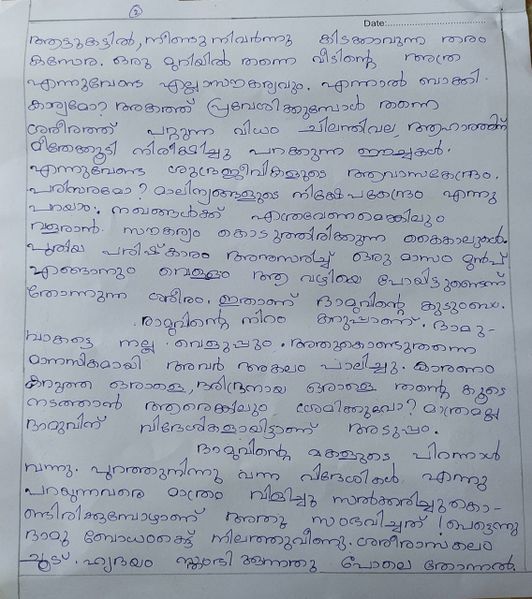 ②
Date:
ആട്ടുകട്ടിൽ, നീണ്ടുനിവർന്നു കിടക്കാവുന്ന തരം
കസേര. ഒരു മുറിയിൽ തന്നെ വീടിന്റെ അത്ര
എന്നുവേണ്ട എല്ലാസൗകര്യവും. എന്നാൽ ബാക്കി
കാര്യമോ? അകത്ത് പ്രവേശിക്കുമ്പോൾ തന്നെ
ശരീരത്ത് പറ്റുന്ന വിധം ചിലന്തിവല, ആഹാരത്തിന്
മീതേക്കൂടി നിരീക്ഷിച്ചു പറക്കുന്ന ഈച്ചകൾ.
എന്നുവേണ്ട ക്ഷുദ്രജീവികളുടെ ആവാസകേന്ദ്രം.
പരിസരമോ? മാലിന്യങ്ങളുടെ നിക്ഷേപകേന്ദ്രം എന്നു
പറയാം. നഖങ്ങൾക്ക് എത്രവേണമെങ്കിലും
വളരാൻ സൗകര്യം കൊടുത്തിരിക്കുന്ന കൈകാലുകൾ.
പുതിയ പരിഷ്കാരം അനുസരിച്ച് ഒരു മാസം മുൻപ്
എങ്ങാനും വെള്ളം ആ വഴിയെ പോയിട്ടുണ്ടെന്ന്
തോന്നുന്ന ശരീരം. ഇതാണ് ദാമുവിന്റെ കുടുംബം.
രാമുവിന്റെ നിറം കറുപ്പാണ്. ദാമു-
വാകട്ടെ നല്ല വെളുപ്പും. അതുകൊണ്ടുതന്നെ
മാനസികമായി അവർ അകലം പാലിച്ചു. കാരണം
കറുത്ത ഒരാളെ, ദരിദ്രനായ ഒരാളെ തന്റെ കൂടെ
നടത്താൻ ആരെങ്കിലും ശ്രമിക്കുവോ? മാത്രമല്ല
ദാമുവിന് വിദേശികളായിട്ടാണ് അടുപ്പം.
ദാമുവിന്റെ മകളുടെ പിറന്നാൾ
വന്നു. പുറത്തുനിന്നു വന്ന വിദേശികൾ എന്നു
പറയുന്നവരെ മാത്രം വിളിച്ചു സൽക്കരിച്ചുകൊ-
ണ്ടിരിക്കുമ്പോഴാണ് അതു സംഭവിച്ചത്! പെട്ടെന്നു
ദാമു ബോധംകെട്ട് നിലത്തുവീണു. ശരീരാസകലം
ചൂട്. ഹൃദയം പോലെ തോന്നൽ.